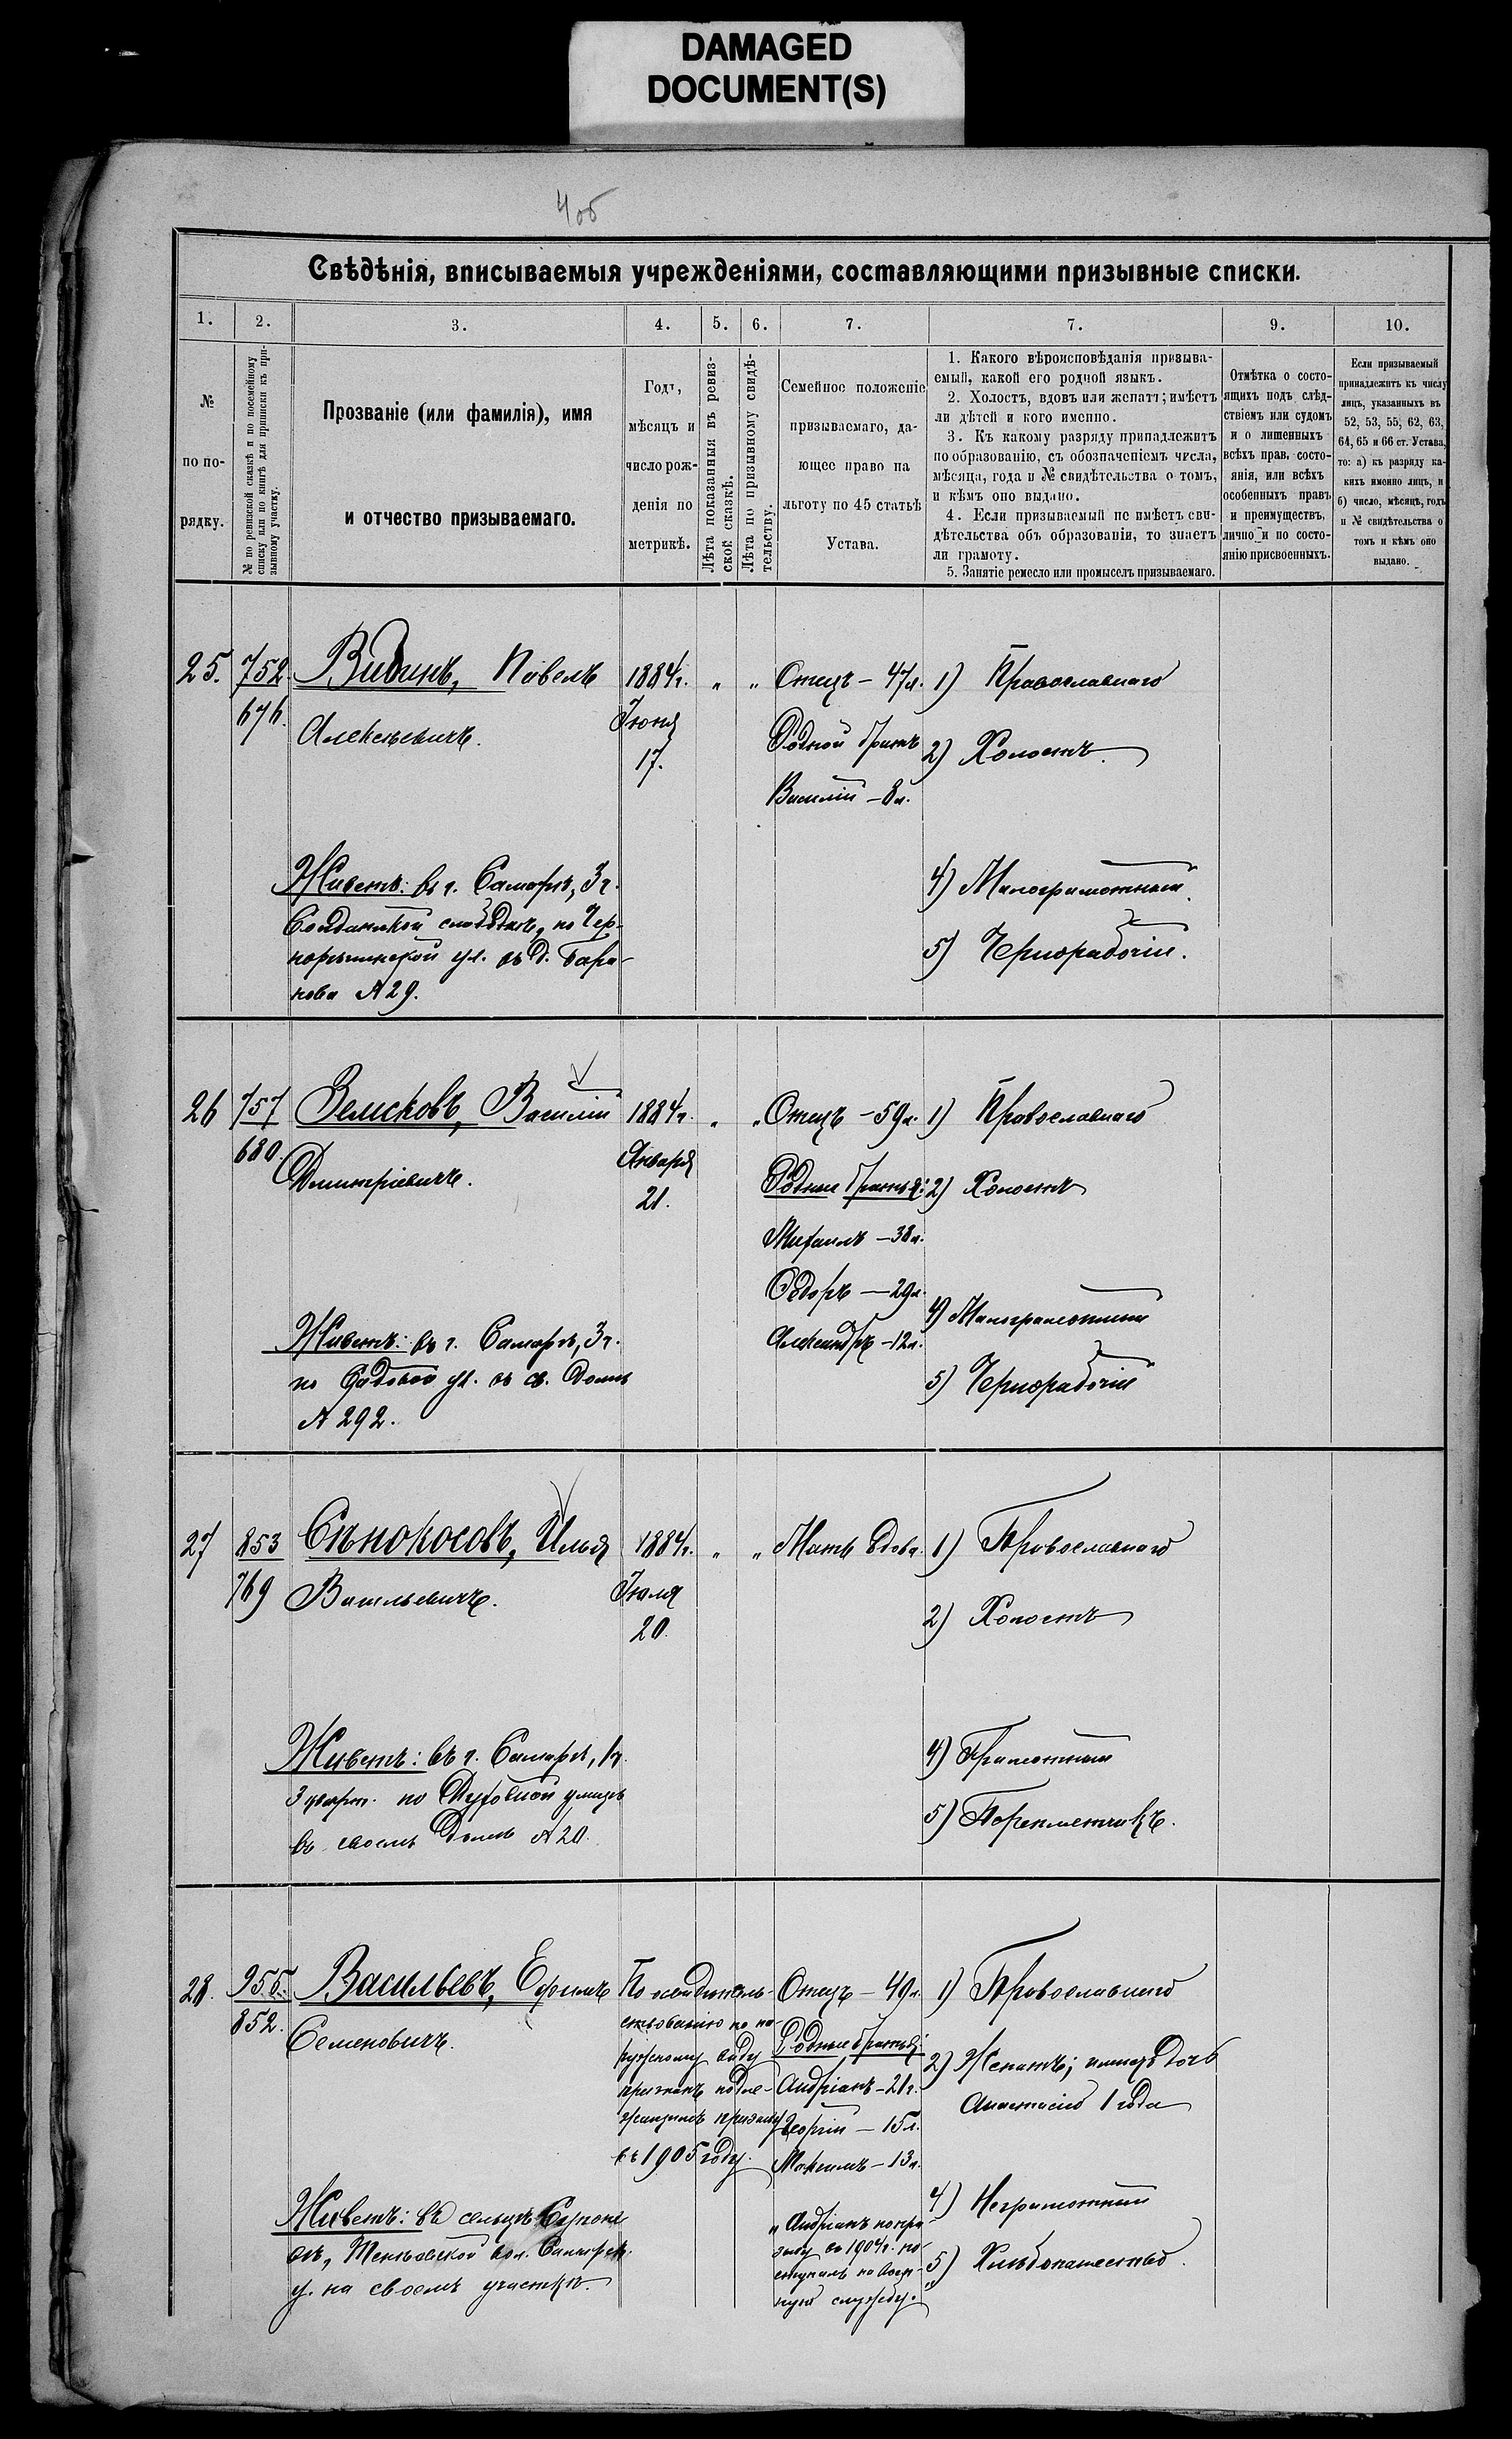 DAMAGED
DOCUMENT(S)
4об
Свѣдѣнія, вписываемыя учрежденіями, составляющими призывные списки.
1. 2. 3. 4. 5. 6. 7. 7. 9. 10.
№
по по-
рядку.
№ по ревизской сказкѣ и по посемейному
списку или по книгѣ для приписки къ при-
зывному участку.
Прозваніе (или фамилія), имя
и отчество призываемаго.
Годъ,
мѣсяцъ и
число рож-
денія по
метрикѣ.
Лѣта показанныя въ ревиз-
ской сказкѣ.
Лѣта по призывному свидѣ-
тельству.
Семейное положеніе
призываемаго, да-
ющее право на
льготу по 45 статьѣ
Устава.
1. Какого вѣроисповѣданія призыва-
емый, какой его родной языкъ.
2. Холостъ, вдовъ или женатъ; имѣетъ
ли дѣтей и кого именно.
3. Къ какому разряду принадлежитъ
по образованію, съ обозначеніемъ числа,
мѣсяца, года и № свидѣтельства о томъ,
и кѣмъ оно выдано.
4. Если призываемый не имѣетъ сви-
дѣтельства объ образованіи, то знаетъ
ли грамоту.
5. Занятіе ремесло или промыселъ призываемаго.
Отмѣтка о состо-
ящихъ подъ слѣд-
ствіемъ или судомъ
и о лишенныхъ
всѣхъ прав, состо-
янія, или всѣхъ
особенныхъ правъ
и преимуществъ,
лично и по состо-
янію присвоенныхъ.
Если призываемый
принадлежитъ къ числу
лицъ, указанныхъ въ
52, 53, 55, 62, 63,
64, 65 и 66 ст. Устава,
то: а) къ разряду ка-
кихъ именно лицъ, и
б) число, мѣсяцъ, годъ
и № свидѣтельства о
томъ и кѣмъ оно
выдано.
25. 752. Видинъ, Павелъ 1884г. " " Отецъ – 47л. 1) Православнаго
676. Алексѣевичъ. Іюня Родной братъ 2) Холостъ.
17. Василій – 8л.
Живетъ: въ г. Самарѣ, 3ч. 4) Малограмотный.
Солдатской слободкѣ, по Чер- 5) Чернорабочій.
норѣченской ул. въ д. Бара-
нова № 29.
26 757 Земсковъ, Василій 1884г. " " Отецъ – 59л. 1) Православнаго
680. Димитріевичъ. Января Родные братья: 2) Холостъ
21. Михаилъ – 38л.
Ѳедоръ – 29л.
Александръ – 12л. 4) Малограмотный
Живетъ: въ г. Самарѣ, 3ч. 5) Чернорабочій
по Садовой ул. въ св. домѣ
№ 292.
27 853 Сѣнокосовъ, Илья 1884г. " " Мать вдова. 1) Православнаго
769 Васильевичъ. Іюля 2) Холостъ
20.
Живетъ: въ г. Самарѣ, 1ч. 4) Грамотный
3 кварт. по Духовной улицѣ 5) Переплетчикъ.
въ своемъ домѣ № 20.
28. 955. Васильевъ, Ефимъ По освидѣтель- Отецъ – 49л. 1) Православнаго
852. Семеновичъ. ствованію по на- Родные братья: 2) Женатъ; имѣетъ дочь
ружному виду Андріанъ – 21г. Анастасію 1 года
признанъ подле- Георгій – 15л.
жащимъ призыву Максимъ – 13л.
въ 1905 году. 4) Неграмотный
Живетъ: въ сельцѣ " Андріанъ по при- 5) Хлѣбопашество.
вол. Самарск. зыву въ 1904г. по-
у. на своемъ участкѣ. ступилъ на воен-
ную службу.